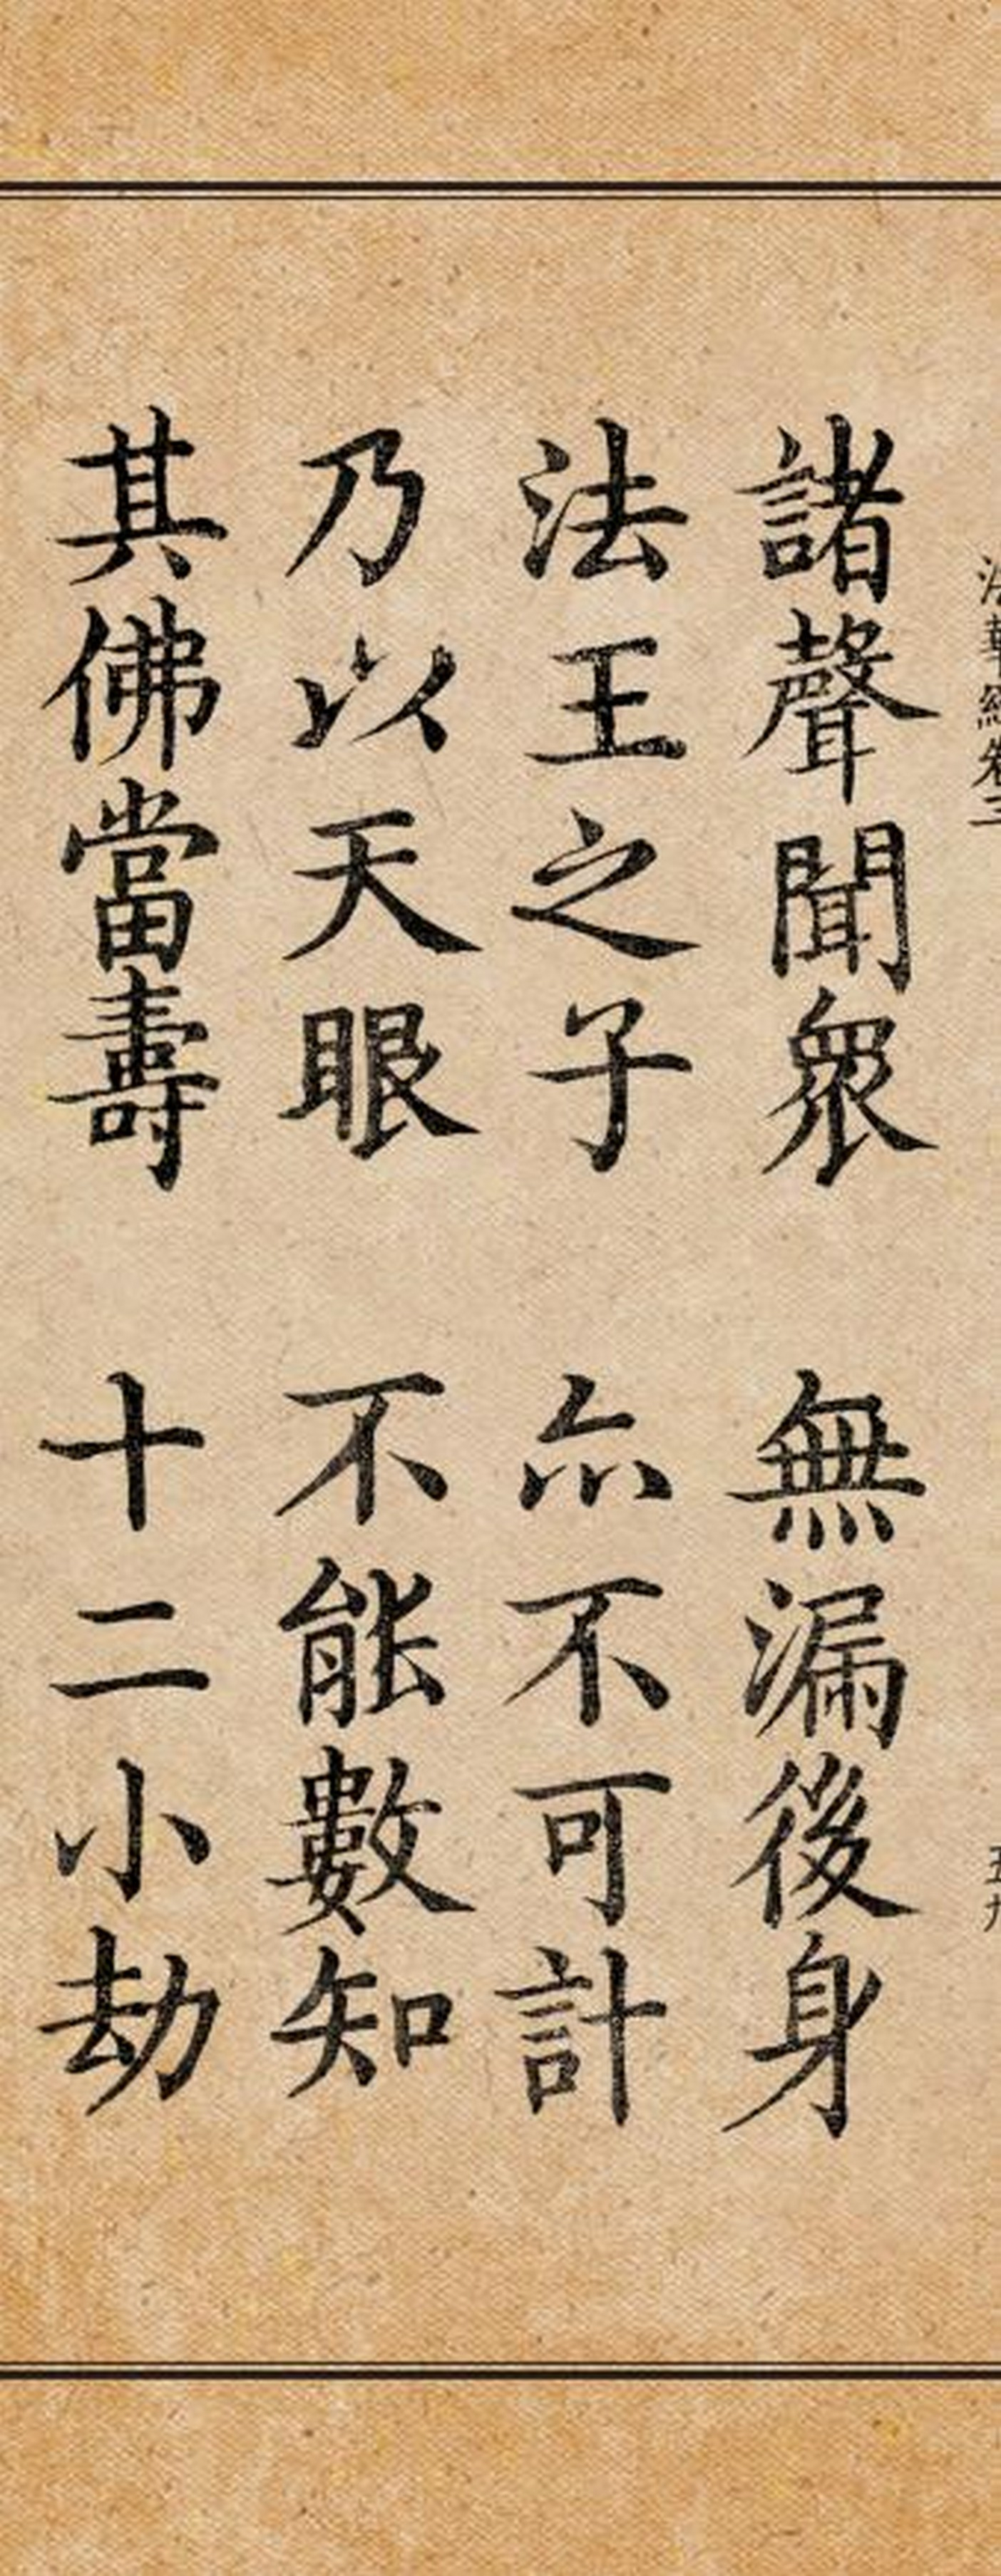 法華經卷三 五九
諸聲聞眾 無漏後身
法王之子 亦不可計
乃以天眼 不能數知
其佛當壽 十二小劫